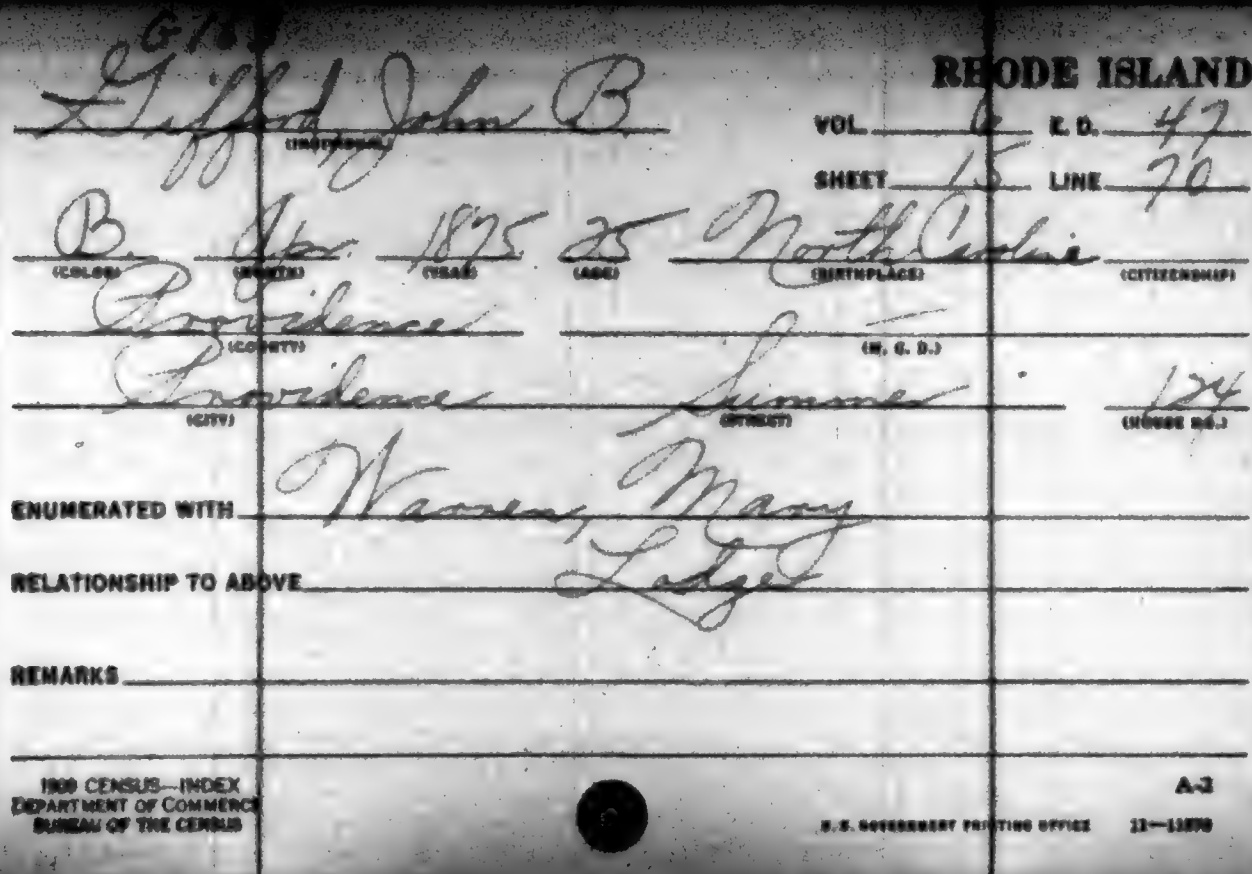 G16
RHODE ISLAND
Gifford John B
(INDIVIDUAL)
VOL. 6 E. D. 47
SHEET 15 LINE 70
B. Apr. 1875 25 North Caroline
(COLOR) (MONTH) (YEAR) (AGE) (BIRTHPLACE) (CITIZENSHIP)
Providence —
(COUNTY) (M. C. D.)
Providence Summer 124
(CITY) (STREET) (HOUSE NO.)
ENUMERATED WITH Warren, Mary
RELATIONSHIP TO ABOVE Lodger
REMARKS
1900 CENSUS—INDEX
DEPARTMENT OF COMMERCE
BUREAU OF THE CENSUS
A-2
U.S. GOVERNMENT PRINTING OFFICE